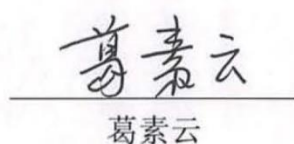 葛素云
葛素云